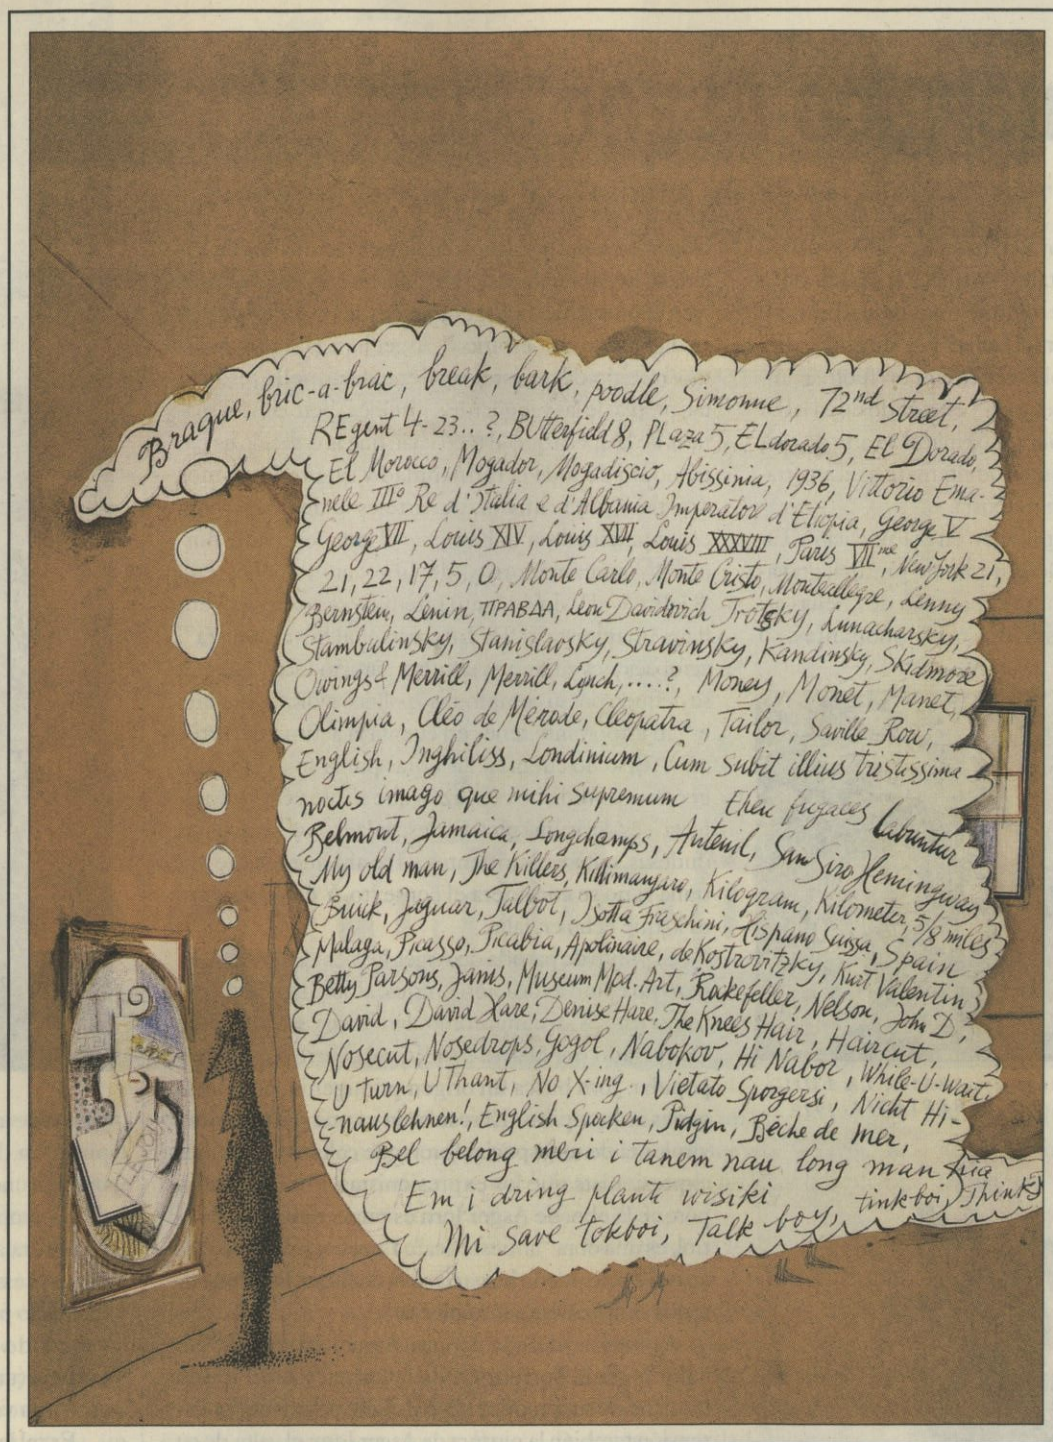 Braque, bric-a-brac, break, bark, poodle, Simonne, 72nd Street,
REgent 4-23..?, BUtterfield 8, PLaza 5, ELdorado 5, El Dorado,
El Morocco, Mogador, Mogadiscio, Abissinia, 1936, Vittorio Ema-
nele IIIº Re d'Italia e d'Albania Imperatore d'Etiopia, George V
George VII, Louis XIV, Louis XVII, Louis XXXVIII, Paris VIIme, New York 21,
21, 22, 17, 5, 0, Monte Carlo, Monte Cristo, Monteallegre, Lenny
Bernstein, Lenin, ПРАВДА, Leon Davidovich Trotsky, Lunacharsky,
Stambulinsky, Stanislavsky, Stravinsky, Kandinsky, Skidmore
Owings & Merrill, Merrill, Lynch, ....?, Money, Monet, Manet,
Olimpia, Cléo de Mérode, Cleopatra, Tailor, Saville Row,
English, Inghiliss, Londinium, Cum subit illius tristissima
noctis imago que mihi supremum Eheu fugaces labuntur
Belmont, Jamaica, Longchamps, Auteuil, San Siro Hemingway
My old man, The Killers, Killimanjaro, Kilogram, Kilometer, 5/8 miles
Buick, Jaguar, Talbot, Isotta Fraschini, Hispano Suissa, Spain
Malaga, Picasso, Picabia, Apolinaire, de Kostrovitzky, Kurt Valentin
Betty Parsons, Janis, Museum Mod. Art, Rockefeller, Nelson, John D,
David, David Hare, Denise Hare, The Knees Hair, Haircut,
Nosecut, Nosedrops, Gogol, Nabokov, Hi Nabor, While-U-Wait,
U Turn, U Thant, No X-ing, Vietato Sporgersi, Nicht Hi-
-nauslehnen!, English Spocken, Pidgin, Bêche de mer,
Bel belong meri i tanem nau long man
Em i dring planti wisiki tinkboi, Think
Mi save tokboi, Talk boy,